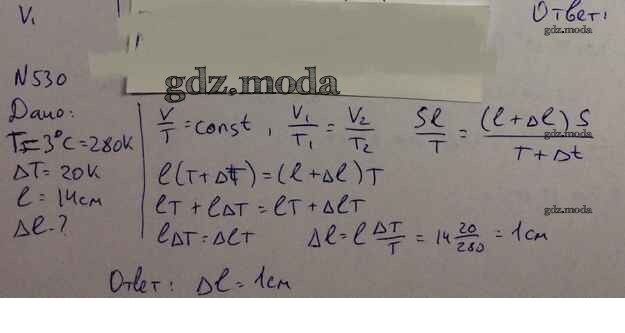 V₁
Ответ:
gdz.moda
N530
gdz.moda
Дано:
T = 3°C = 280K
ΔT = 20K
l = 14см
Δl - ?
V/T = const, V₁/T₁ = V₂/T₂ Sl/T = (l + Δl)S/T + Δt
gdz.moda
l(T + Δt) = (l + Δl)T
lT + lΔT = lT + ΔlT
gdz.moda
lΔT = ΔlT Δl = l ΔT/T = 14 20/280 = 1см
Ответ: Δl = 1см